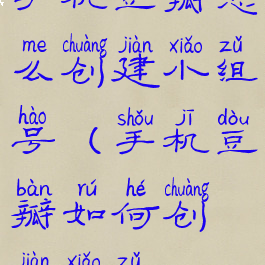 手机豆瓣怎
me chuàng jiàn xiǎo zǔ
么创建小组
hào shǒu jī dòu
号（手机豆
bàn rú hé chuàng
瓣如何创
jiàn xiǎo zǔ